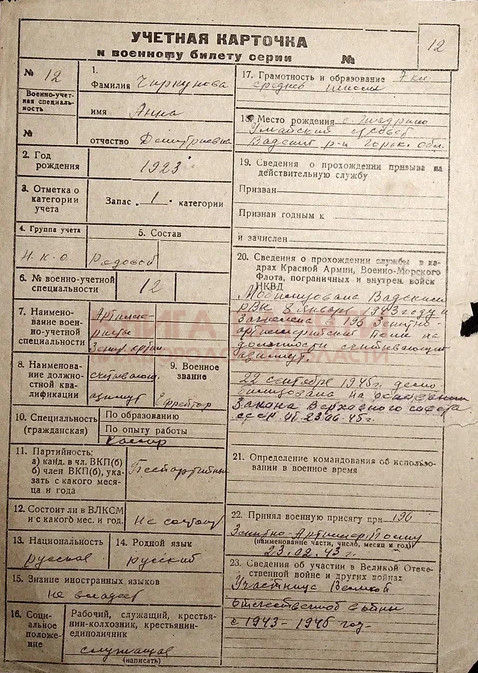 УЧЕТНАЯ КАРТОЧКА
к военному билету серии №
12
№ 12
Военно-учет-
ная специаль-
ность
№
1.
Фамилия Чиркунова
имя Анна
отчество Дмитриевна
2. Год
рождения
1923
3. Отметка о
категории
учета
Запас 1 категории
4. Группа учета
Н.К.О.
5. Состав
Рядовой
6. № военно-учетной
специальности
12
7. Наимено-
вание воен-
но-учетной
специальности
8. Наименова-
ние должно-
стной ква-
лификации
азимут
9. Военное
звание
Ефрейтор
10. Специальность
(гражданская)
По образованию
По опыту работы
Кассир
11. Партийность:
а) канд. в чл. ВКП(б)
б) член ВКП(б), ука-
зать с какого меся-
ца и года
Беспартийный
12. Состоит ли в ВЛКСМ
и с какого мес. и год.
Не состоит
13. Национальность
русская
14. Родной язык
русский
15. Знание иностранных языков
не владеет
16. Соци-
альное
положе-
ние
Рабочий, служащий, крестья-
нин-колхозник, крестьянин-
единоличник
служащая
(написать)
17. Грамотность и образование 7 кл.
средней школы
18. Место рождения
Вадский р-н Горьк. обл.
19. Сведения о прохождении призыва на
действительную службу
Призван
Признан годным к
и зачислен
20. Сведения о прохождении службы в ка-
драх Красной Армии, Военно-Морского
Флота, пограничных и внутрен. войск
НКВД
Мобилизована Вадским
РВК 8 января 1943 году и
зачислена 196 Зенитно-
артиллерийский полк на
должности считывающий
азимут.
22 сентября 1945г. демо-
билизована на основании
Закона Верховного совета
СССР от 23.06.45г.
21. Определение командования об использо-
вании в военное время
22. Принял военную присягу при 196
Зенитно-Артиллер. Полку
(наименование части, число, месяц и год)
23.02.43г.
23. Сведения об участии в Великой Отече-
ственной войне и других войнах
Участница Великой
отечественной войны
с 1943-1945 год